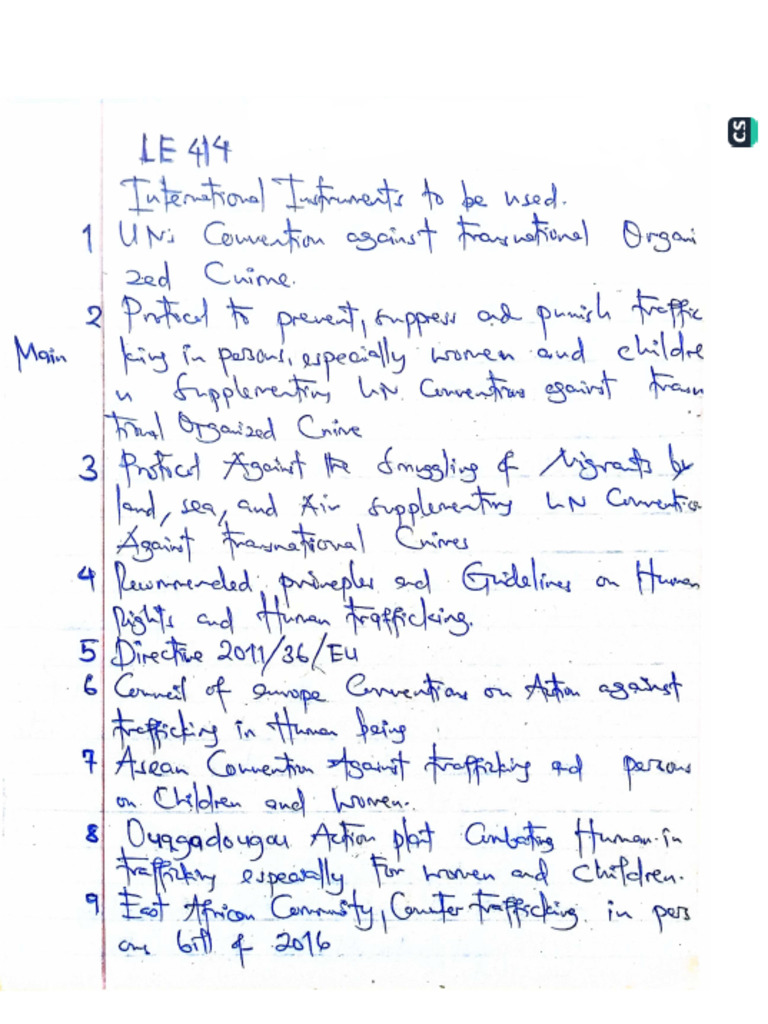 CS
LE 414
International Instruments to be used.
1 UNs Convention against transnational Organi
zed Crime.
2 Protocol to prevent, suppress and punish traffic
Main king in persons, especially women and childre
n Supplementing UN Conventions against trasn
tional Organized Crime
3 Protocol Against the Smuggling of Migrants by
land, sea, and Air supplementing UN Conventio
Against transnational Crimes
4 Recommended principles and Guidelines on Human
Rights and Human trafficking.
5 Directive 2011/36/EU
6 Council of europe Conventions on Action against
trafficking in Human being
7 Asean Convention Against trafficking and persons
on Children and Women.
8 Ouagadougou Action plan Combating Human in
trafficking especially For women and children.
9 East African Community, Counter trafficking in pers
ons bill of 2016